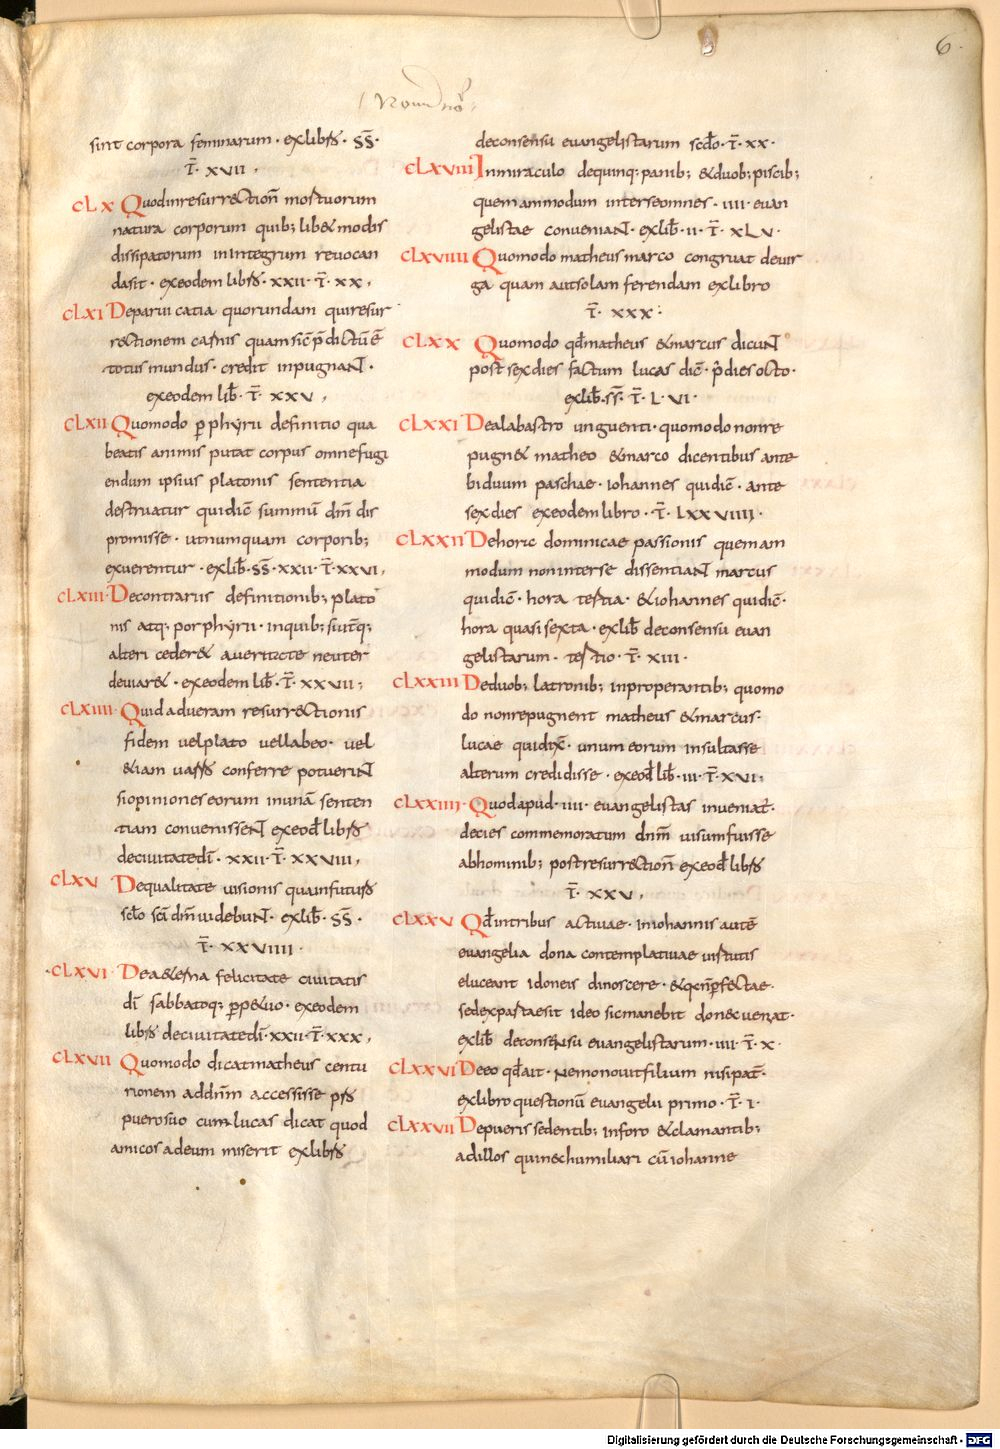 6.
sint corpora feminarum · ex libris · SS̅ ·
T̅ · XVII ·
CLX Quod in resurrection̅ mortuorum
natura corporum quib; lib& modis
dissipatorum in integrum reuocan
da sit · ex eodem libris · XXII · T̅ · XX ·
CLXI De paruicatia quorundam qui resur
r&ctionem carnis quam sic̅ p̅dictu̅ e̅
totus mundus · credit inpugnant ·
ex eodem lib̅ · T̅ · XXV ·
CLXII Quomodo porphyrii definitio qua
beatis animis putat corpus omne fugi
endum ipsius platonis sententia
destruatur qui dic̅ summu̅ dm̅ dis
promisse · ut numquam corporib;
exuerentur · ex lib̅ · SS̅ · XXII · T̅ · XXVI ·
CLXIII · De contrariis definitionib; plato
nis atq; porphyrii · in quib; si ut̅q;
alteri ceder& a ueritate neuter
deuiar& · ex eodem lib̅ · T̅ · XXVII ;
CLXIIII · Quid ad ueram resurr&ctionis
fidem uel plato uel labeo · uel
&iam uarro conferre potuerint
si opiniones eorum in una̅ senten
tiam conuenissent ex eod̅ libris
de ciuitate di̅ · XXII · T̅ · XXVIII ·
CLXV De qualitate uisionis qua in futuris
sc̅lo sc̅i dm̅ uidebunt · ex lib̅ · SS̅ ·
T̅ · XXVIIII ·
· CLXVI · De a&erna felicitate ciuitatis
di̅ sabbatoq; perp&uo · ex eodem
libris de ciuitate di̅ · XXII · T̅ · XXX ·
CLXVII Quomodo dicat matheus centu
rionem ad dn̅m accessisse pro
puero suo cum lucas dicat quod
amicos ad eum miserit ex libris
de consensu euangelistarum sc̅do · T̅ · XX ·
CLXVIII In miraculo de quinq; panib; & duob; piscib;
quemammodum inter se omnes · IIII · euan
gelistae conueniant · ex lib̅ · II · T̅ · XLV ·
CLXVIIII Quomodo matheus marco congruat de uir
ga quam aut solam ferendam ex libro
T̅ · XXX :
CLXX Quomodo qd̅ matheus & marcus dicunt
post sex dies factum lucas dic̅ · p̅ dies octo ·
ex lib̅ · SS̅ · T̅ · L · VI ·
CLXXI De alabastro unguenti · quomodo non re
pugn& matheo & marco dicentibus ante
biduum paschae · iohannes qui dic̅ · ante
sex dies ex eodem libro · T̅ · LXXVIIII ·
CLXXII De horis dominicae passionis quemam
modum non inter se dissentiant marcus
qui dic̅ · hora tertia · & iohannes qui dic̅ ·
hora quasi sexta · ex lib̅ de consensu euan
gelistarum · tertio · T̅ · XIII ·
CLXXIII De duob; latronib; inproperantib; quomo
do non repugnent matheus & marcus ·
lucae qui dix̅ · unum eorum insultasse
alterum credidisse · ex eod̅ lib̅ · III · T̅ · XVI ;
CLXXIIII · Quod apud · IIII · euangelistas inueniat̅ ·
decies commemoratum dn̅m uisum fuisse
ab hominib; post resurr&ction̅ ex eod̅ libris
T̅ · XXV ·
CLXXV Qd̅ in tribus actiuae · in iohannis aute̅
euangelia dona contemplatiuae uirtutis
eluceant idoneis dinoscere · &
sed ex parte sit ideo sic manebit donec ueniat ·
ex lib̅ de consensu euangelistarum · IIII · T̅ · X ·
CLXXVI De eo qd̅ ait · Nemo nouit filium nisi pat̅ ·
ex libro questionu̅ euangelii primo · T̅ · I ·
CLXXVII De pueris sedentib; in foro & clamantib;
ad illos qui nec humiliari cu̅ iohanne
Digitalisierung gefördert durch die Deutsche Forschungsgemeinschaft - DFG